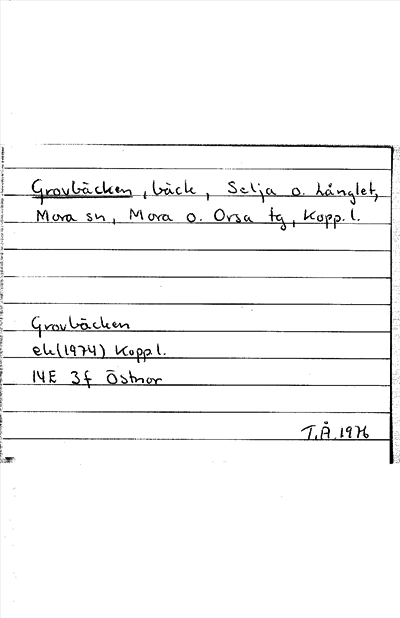 Grovbäcken, bäck, Selja o. Långlet,
Mora sn, Mora o. Orsa tg, Kopp. l.
Grovbäcken
ek (1974) Kopp l.
14E 3f Östnor
T.Å. 1976